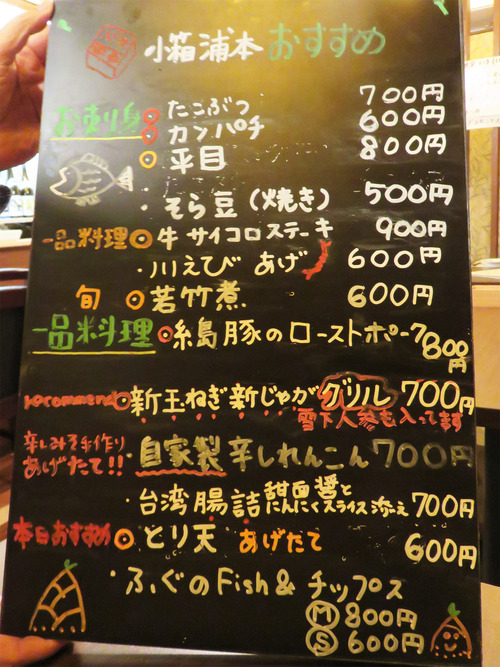 小箱浦本 おすすめ
お刺身 たこぶつ 700円
カンパチ 600円
平目 800円
・そら豆(焼き) 500円
一品料理 牛サイコロステーキ 900円
・川えび あげ 600円
旬 若竹煮 600円
一品料理 糸島豚のローストポーク 800円
recommend 新玉ねぎ 新じゃが グリル 700円
雪下人参も入ってます
辛しみそ手作り
あげたて!! ・自家製 辛しれんこん 700円
・台湾腸詰 甜面醤と
にんにくスライス添え 700円
本日おすすめ とり天 あげたて 600円
・ふぐのFish & チップス
M 800円
S 600円